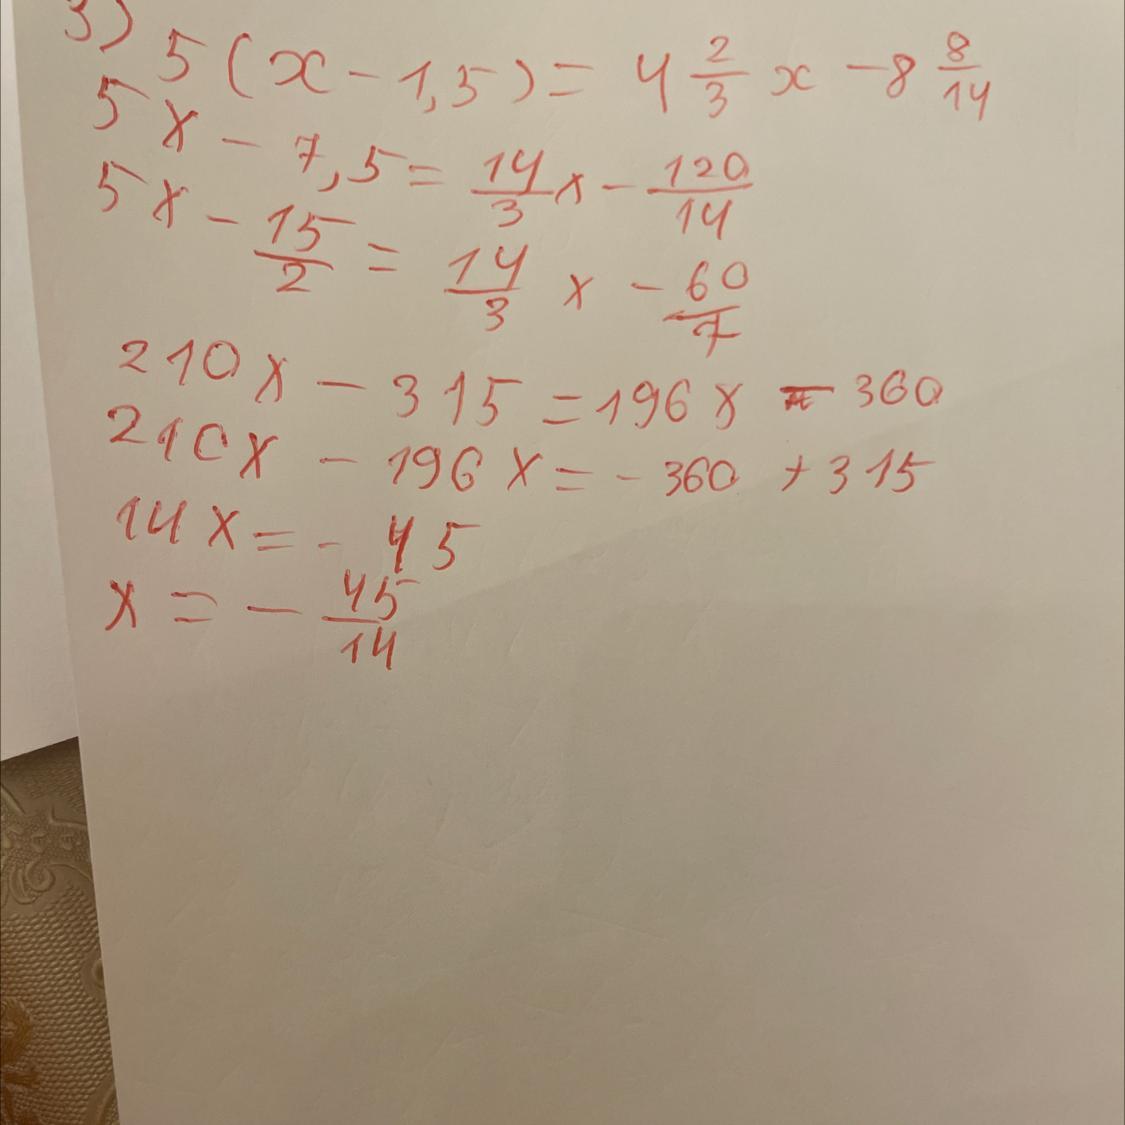 3) 5(x - 1,5) = 4 2/3 x - 8 8/14
5x - 7,5 = 14/3 x - 120/14
5x - 15/2 = 14/3 x - 60/7
210x - 315 = 196x - 360
210x - 196x = - 360 + 315
14x = - 45
x = - 45/14